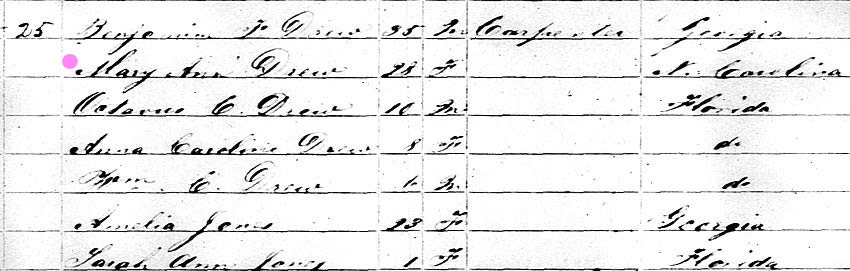 25 Benjamin F Drew 35 M Carpenter Georgia
Mary Ann Drew 28 F N. Carolina
Octavus C. Drew 10 M Florida
Anna Caroline Drew 8 F do
Wm C. Drew 6 M do
Amelia Jones 23 F Georgia
Sarah Ann Jones 1 F Florida